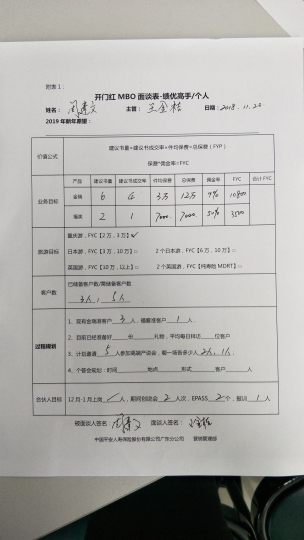 附表1：
开门红MBO面谈表-绩优高手/个人
姓名： 主顾： 王金桂 日期：2018.11.20
2019年新年期望：
价值公式 建议书量×建议书成交率×件均保费=总保费（FYP）
保费*佣金率=FYC
业务目标 产品 建议书量 建议书成交率 件均保费 总保费 佣金率 FYC 合计FYC
金瑞 6 4 3万 12万 9% 10800
福类 2 1 7000 7000 50% 3500
旅游目标 重庆游，FYC【2万，3万】✓
日本游，FYC【3万，10万】□ 2个日本游，FYC【6万，10万】□
英国游，FYC【10万，以上】□ 2个英国游，FYC【纯寿险MDRT】□
客户数 已储备客户数/需储备客户数
3人，5人
过程规划 1、现有金瑞准客户 3 人，福慧准客户 1 人，
2、目前已经准备好 份 礼物，平均每日拜访 位客户
3、计划邀请 5 人参加高端产说会，第一场各多少人 2人，1人
4、个答会规划：时间 地点 形式 客户 人
合伙人目标 12月-1月上岗 1 人，期间创说会 2 人次，EPASS 2 个，报训 1 人
被面谈人签名： 面谈人签名：
中国平安人寿保险股份有限公司广东分公司 营销管理部